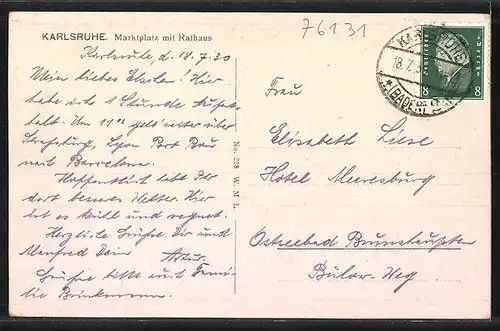 76131
KARLSRUHE. Marktplatz mit Rathaus
Karlsruhe, d. 18.7.30
Mein liebes Elselein! Hier
habe ich 1 Stunde Aufent-
halt. Um 11 geht weiter über
Strassburg, Lyon Port Bou
nach Barcelona.
Hoffentlich habt Ihr
dort besseres Wetter. Hier
ist es kühl und regnet.
Herzliche Grüsse Dir und
Manfred Dein Artur.
Grüsse bitte auch Fami-
lie Brinkmann.
No. 218 W. M. L.
Frau
Elisabeth Liese
Hotel Meeresburg
Ostseebad Brunshaupten
Bülow-Weg
KARLSRUHE
18.7.3
(BADEN)
Deutsches Reich
8 8